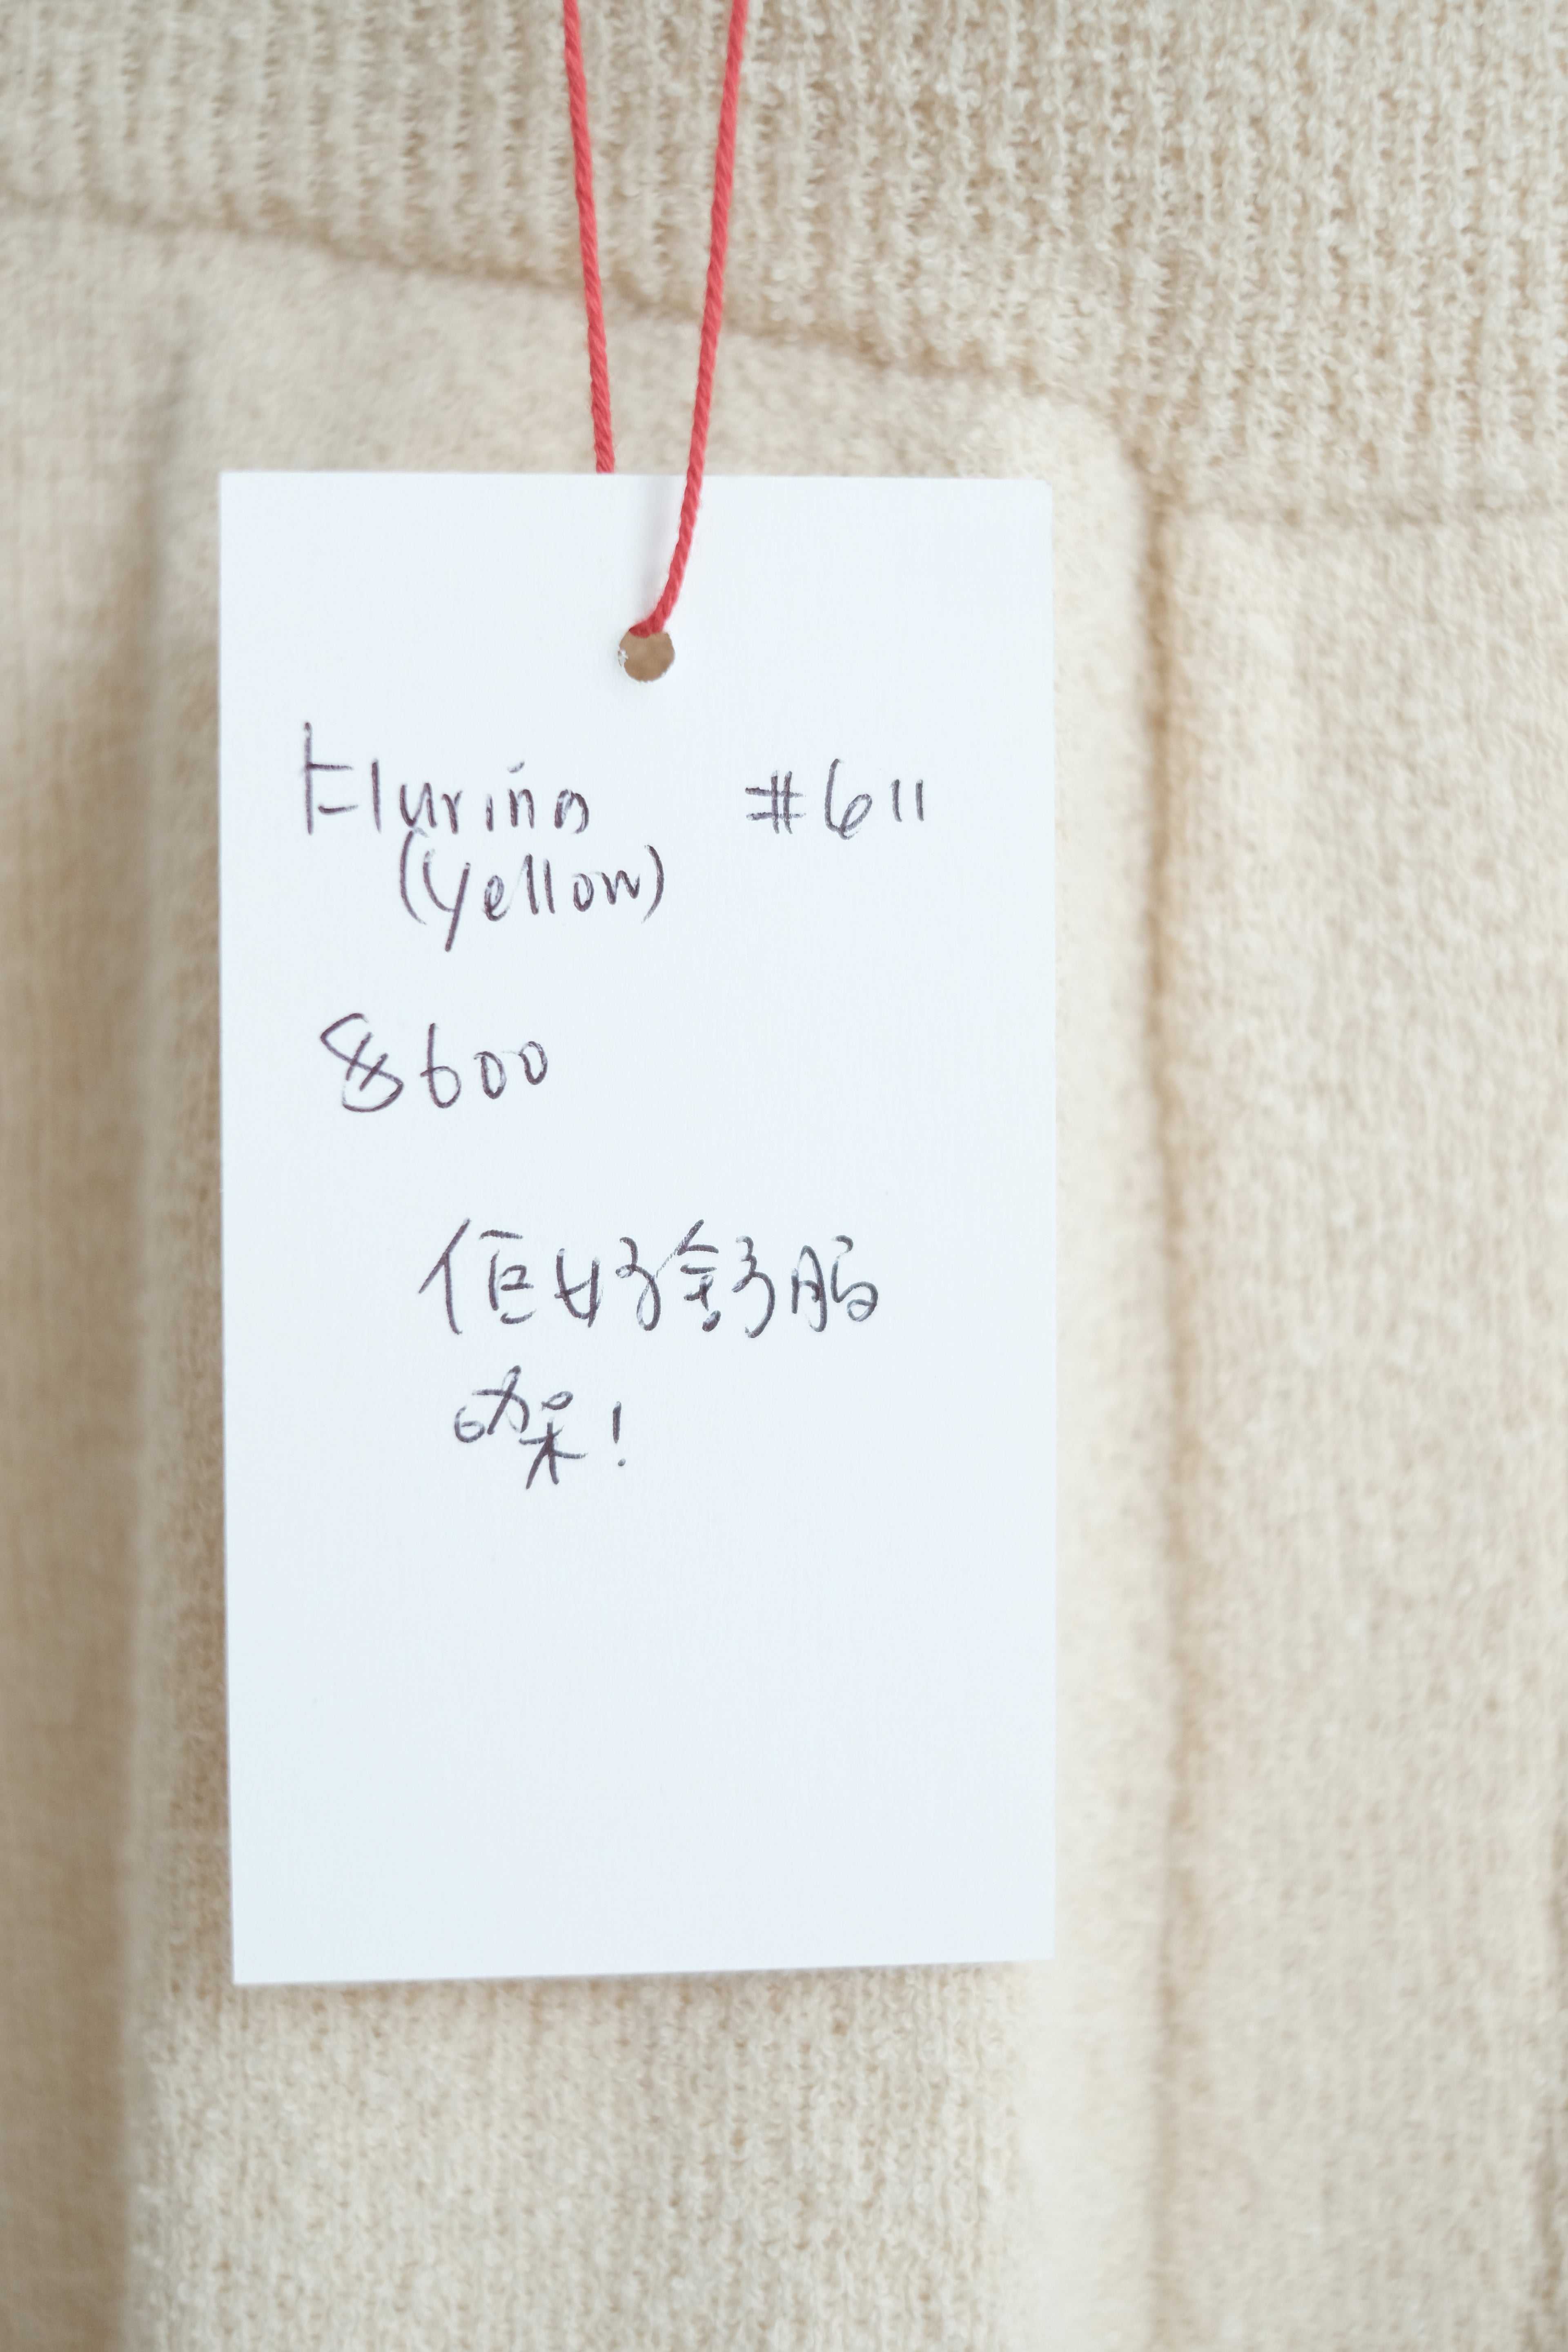 Elurino #611
(Yellow)
$600
佢好舒服
㗎!